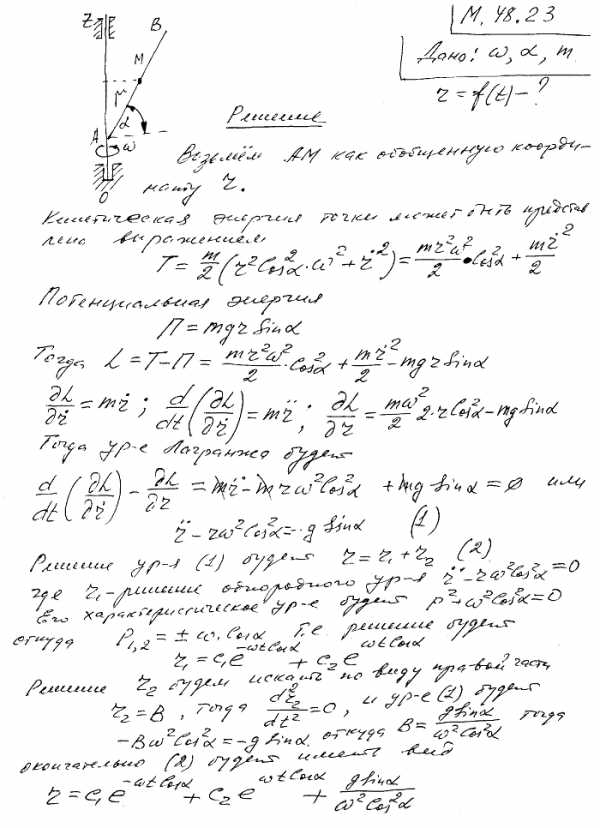 М. 48.23
Дано: ω, α, m
r = f(t) - ?
Z
B
M
r
A
α
ω
O
Решение
Возьмём AM как обобщенную коорди-
нату r.
Кинетическая энергия точки может быть представ
лена выражением
T = m/2 (r² cos²α · ω² + ṙ²) = mr²ω²/2 · cos²α + mṙ²/2
Потенциальная энергия
П = mgr sinα
Тогда L = T - П = mr²ω²/2 · cos²α + mṙ²/2 - mgr sinα
∂L/∂ṙ = mṙ ; d/dt (∂L/∂ṙ) = mr̈ ; ∂L/∂r = mω²/2 2·r cos²α - mg sinα
Тогда ур-е Лагранжа будет
d/dt (∂L/∂ṙ) - ∂L/∂r = mr̈ - mrω² cos²α + mg sinα = 0 или
r̈ - rω² cos²α = -g sinα (1)
Решение ур-я (1) будет r = r₁ + r₂ (2)
где r₁ - решение однородного ур-я r̈ - rω² cos²α = 0
Его характеристическое ур-е будет p² + ω² cos²α = 0
откуда P₁,₂ = ± ω. cosα т.е. решение будет
r₁ = c₁e^(-ωt cosα) + c₂e^(ωt cosα)
Решение r₂ будем искать по виду правой части
r₂ = B, тогда d²r₂/dt² = 0, и ур-е (1) будет
-Bω² cos²α = -g sinα. откуда B = g sinα/ω² cos²α тогда
окончательно (2) будет иметь вид
r = c₁e^(-ωt cosα) + c₂e^(ωt cosα) + g sinα/ω² cos²α